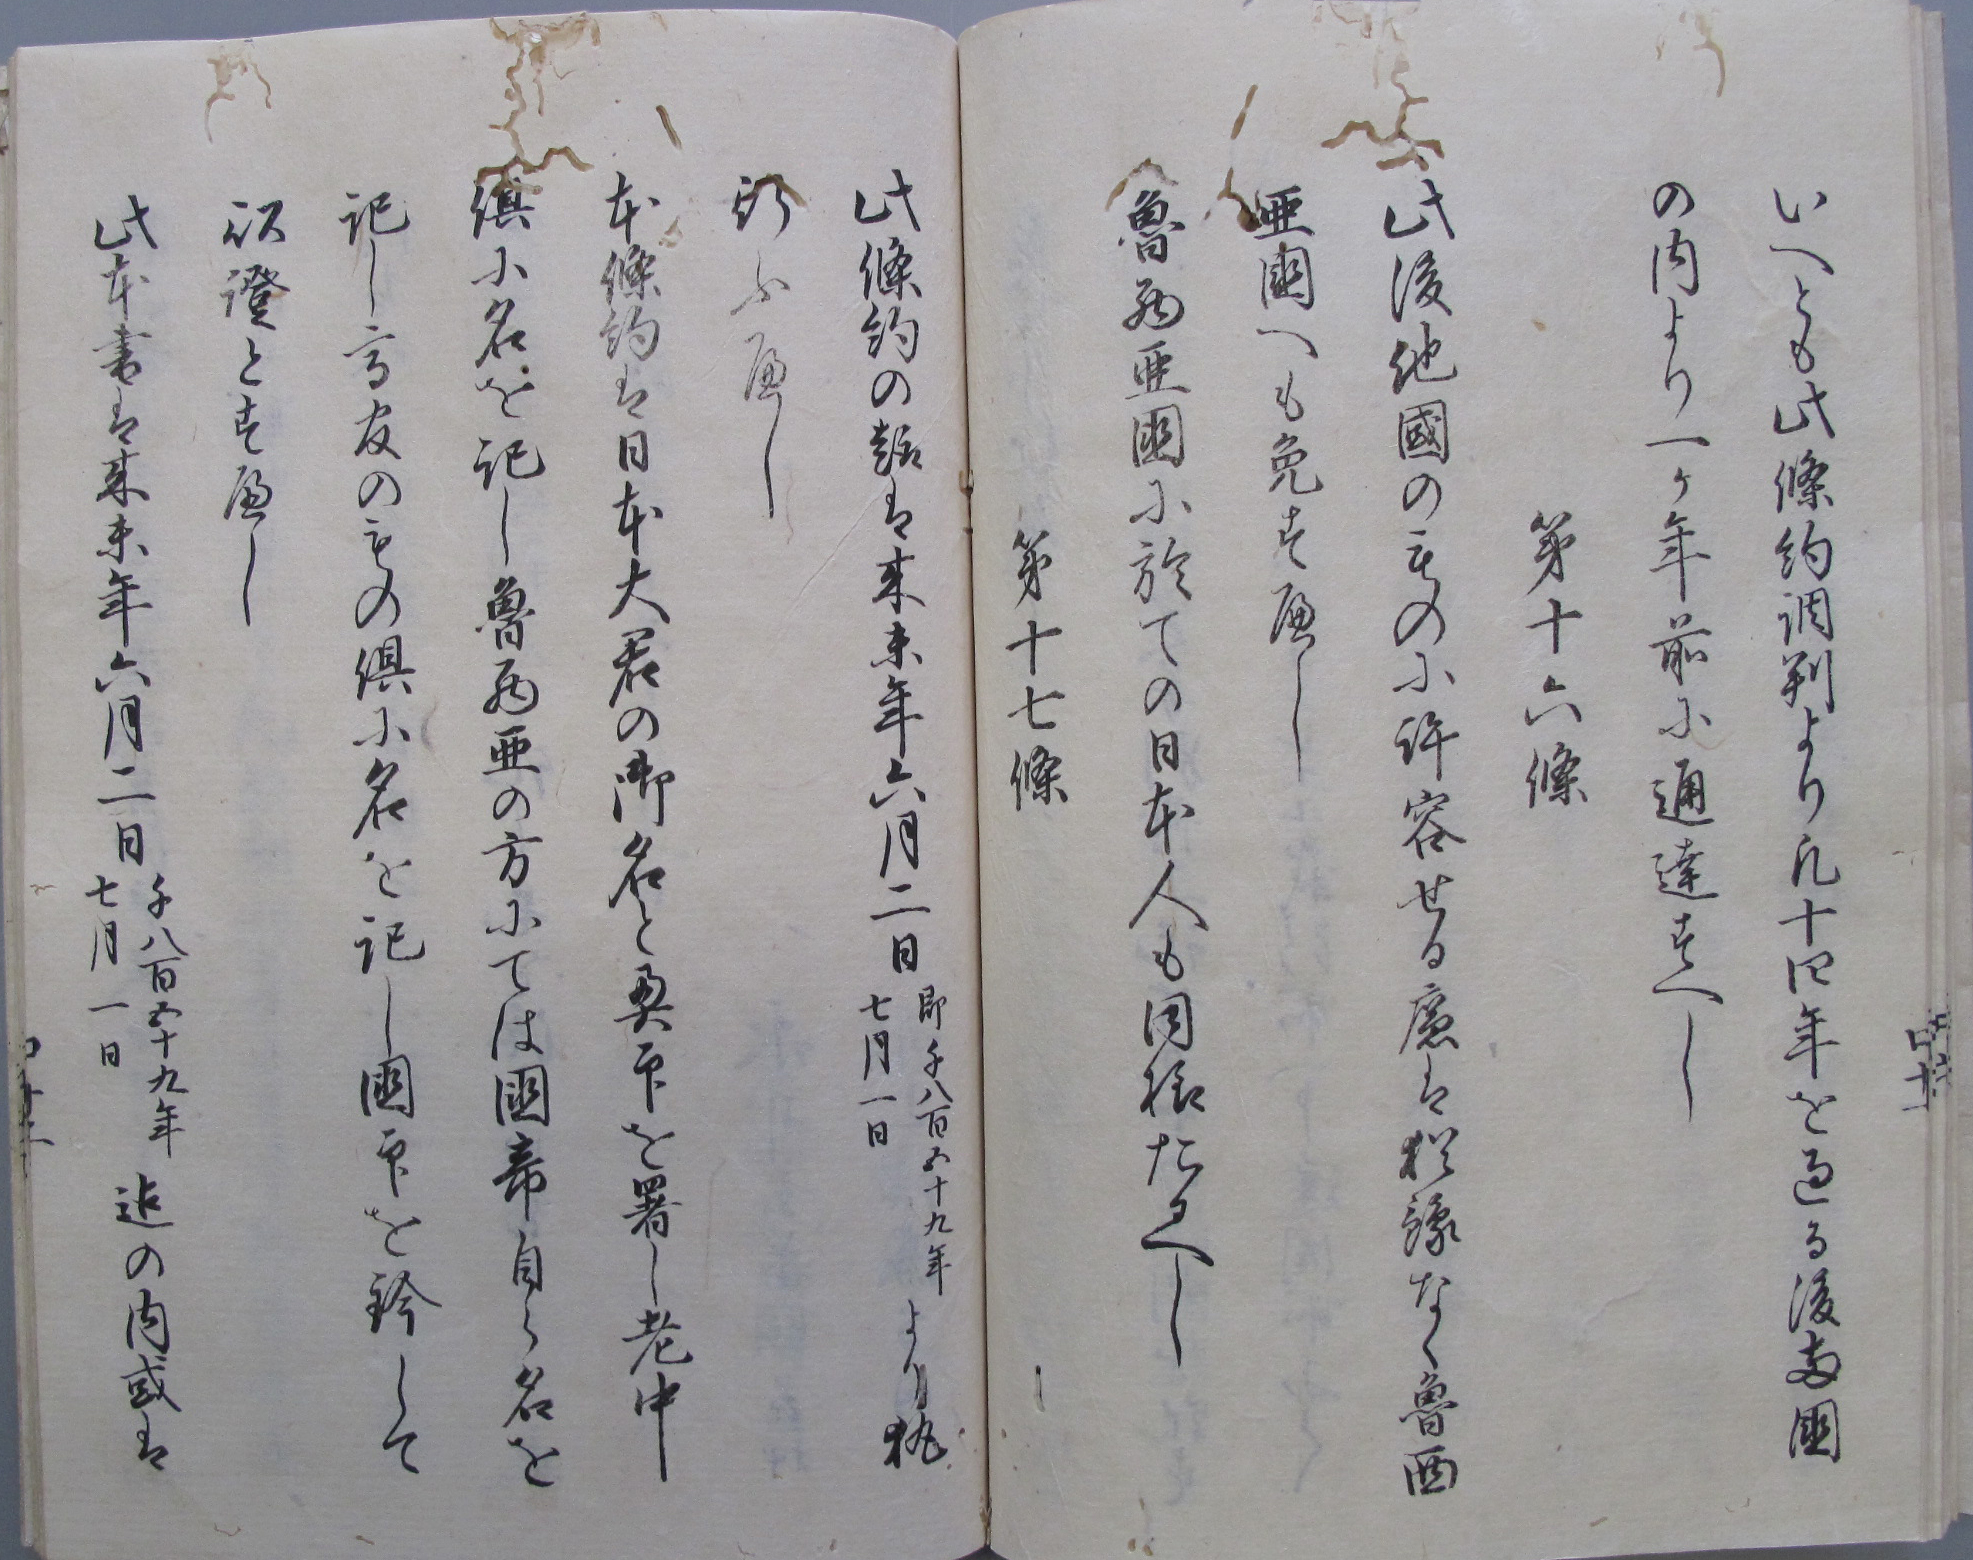 いへとも此條約調判より凡十四年を過る後両國
の内より一ヶ年前に通達すへし
第十六條
此後他國のものに許容せる廉は猶豫なく魯西
亜國へも免すへし
魯西亜國に於ての日本人も同様たるへし
第十七條
此條約の趣は来未年六月二日
即千八百五十九年
七月一日
より執
行ふへし
本條約は日本大君の御名と奥印を署し老中
倶に名を記し魯西亜の方にては國帝自ら名を
記し高官のもの倶に名を記し國印を鈐して
以證とすへし
此本書は来未年六月二日
千八百五十九年
七月一日
迄の内或は